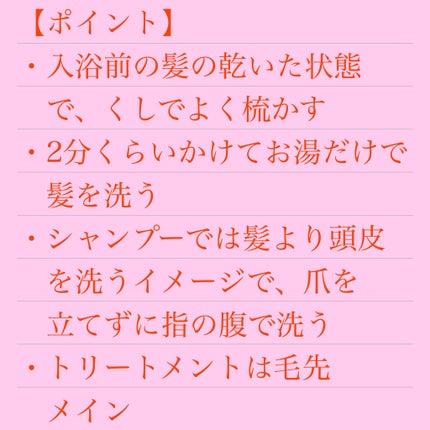 【ポイント】
・入浴前の髪の乾いた状態
で、くしでよく梳かす
・2分くらいかけてお湯だけで
髪を洗う
・シャンプーでは髪より頭皮
を洗うイメージで、爪を
立てずに指の腹で洗う
・トリートメントは毛先
メイン